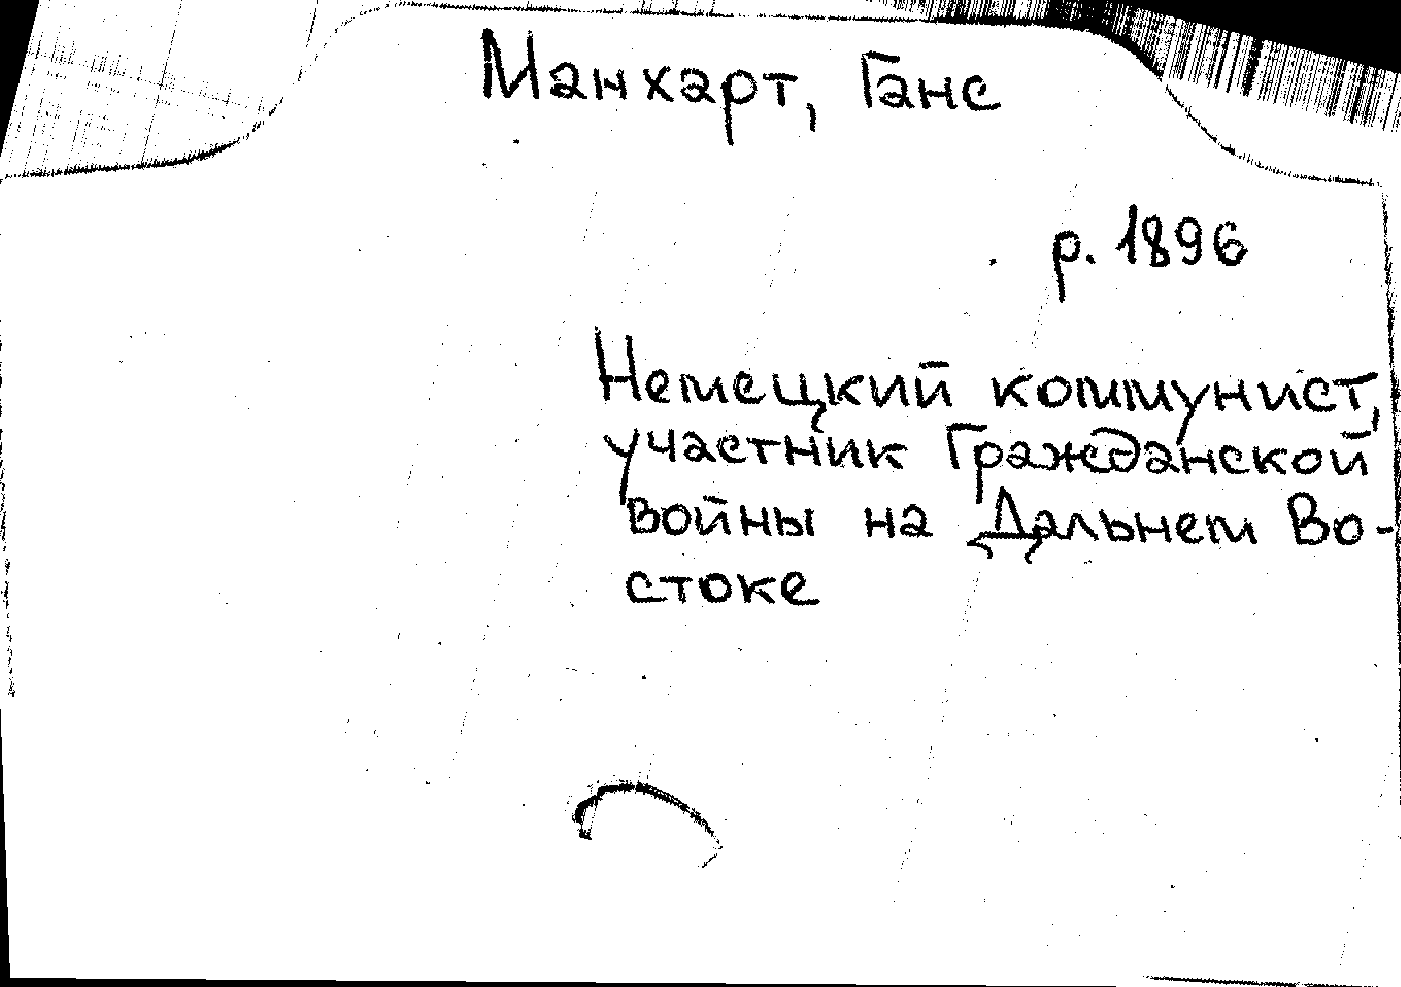 Манхарт, Ганс
р. 1896
Немецкий коммунист,
участник Гражданской
войны на Дальнем Во-
стоке